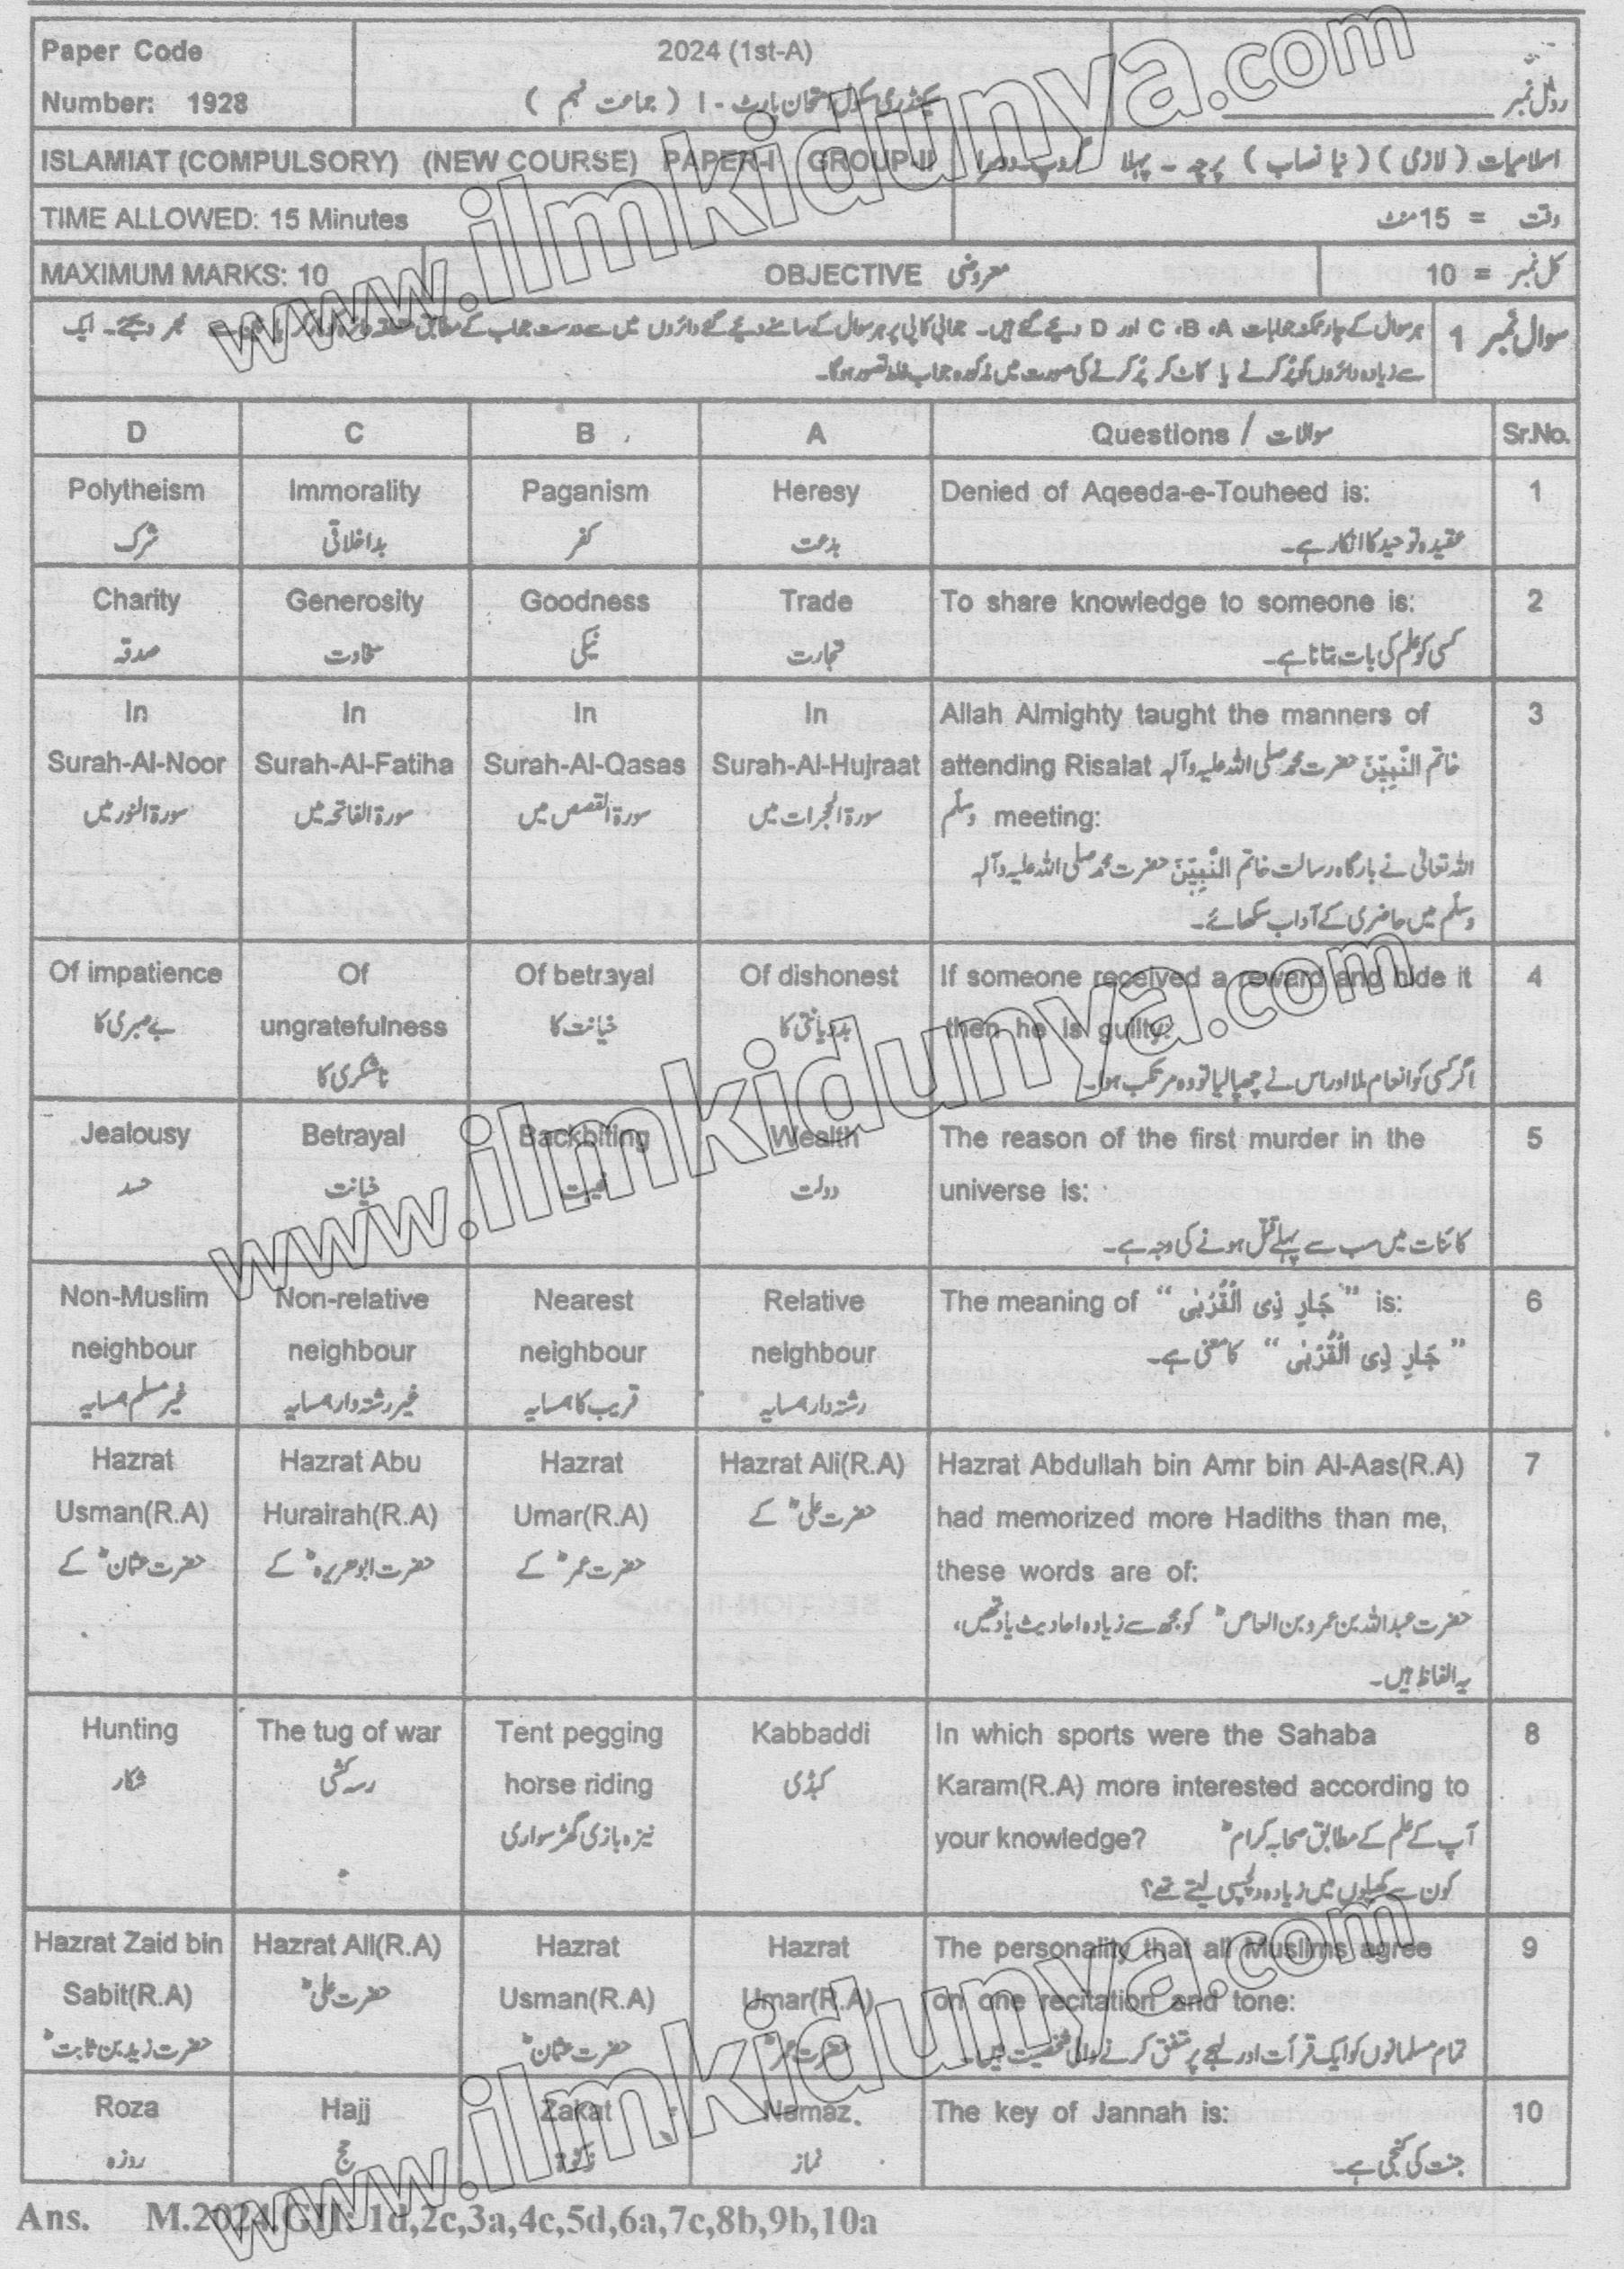 Paper Code
Number: 1928
2024 (1st-A)
سیکنڈری سکول امتحان پارٹ - I ( جماعت نہم )
رول نمبر
ISLAMIAT (COMPULSORY) (NEW COURSE) PAPER-I GROUP-II
اسلامیات ( لازمی ) ( نیا نصاب ) پرچہ - پہلا گروپ دوسرا
TIME ALLOWED: 15 Minutes
وقت = 15 منٹ
MAXIMUM MARKS: 10
OBJECTIVE معروضی
کل نمبر = 10
سوال نمبر 1
ہر سوال کے چار ممکنہ جوابات A، B، C اور D دیئے گئے ہیں۔ جوابی کاپی پر ہر سوال کے سامنے دیئے گئے دائروں میں سے درست جواب کے مطابق متعلقہ دائرہ کو بھر دیجئے۔ ایک
سے زیادہ دائروں کو پُر کرنے یا کاٹ کر پُر کرنے کی صورت میں مذکورہ جواب غلط تصور ہوگا۔
D C B A Questions / سوالات Sr.No.
Polytheism Immorality Paganism Heresy Denied of Aqeeda-e-Touheed is: 1
شرک بداخلاقی کفر بدعت عقیدہ توحید کا انکار ہے۔
Charity Generosity Goodness Trade To share knowledge to someone is: 2
صدقہ سخاوت نیکی تجارت کسی کو علم کی بات بتانا ہے۔
In In In In Allah Almighty taught the manners of 3
Surah-Al-Noor Surah-Al-Fatiha Surah-Al-Qasas Surah-Al-Hujraat attending Risalat خاتم النَّبِیّٖنَ حضرت محمد صلی اللہ علیہ وآلہ
سورۃ النور میں سورۃ الفاتحہ میں سورۃ القصص میں سورۃ الحجرات میں وسلّم meeting:
اللہ تعالیٰ نے بارگاہ رسالت خاتم النَّبِیّٖنَ حضرت محمد صلی اللہ علیہ وآلہ
وسلّم میں حاضری کے آداب سکھائے۔
Of impatience Of Of betrayal Of dishonest If someone received a reward and hide it 4
بے صبری کا ungratefulness خیانت کا بددیانتی کا then he is guilty:
ناشکری کا اگر کسی کو انعام ملا اور اس نے چھپا لیا تو وہ مرتکب ہوا۔
Jealousy Betrayal Backbiting Wealth The reason of the first murder in the 5
حسد خیانت غیبت دولت universe is:
کائنات میں سب سے پہلے قتل ہونے کی وجہ ہے۔
Non-Muslim Non-relative Nearest Relative The meaning of “ جَارِ ذِی الْقُرْبٰی ” is: 6
neighbour neighbour neighbour neighbour ” جَارِ ذِی الْقُرْبٰی “ کا معنی ہے۔
غیر مسلم ہمسایہ غیر رشتہ دار ہمسایہ قریب کا ہمسایہ رشتہ دار ہمسایہ
Hazrat Hazrat Abu Hazrat Hazrat Ali(R.A) Hazrat Abdullah bin Amr bin Al-Aas(R.A) 7
Usman(R.A) Hurairah(R.A) Umar(R.A) حضرت علیؓ کے had memorized more Hadiths than me,
حضرت عثمانؓ کے حضرت ابوہریرہؓ کے حضرت عمرؓ کے these words are of:
حضرت عبداللہ بن عمرو بن العاصؓ کو مجھ سے زیادہ احادیث یاد تھیں،
یہ الفاظ ہیں۔
Hunting The tug of war Tent pegging Kabbaddi In which sports were the Sahaba 8
شکار رسہ کشی horse riding کبڈی Karam(R.A) more interested according to
نیزہ بازی گھڑ سواری your knowledge? آپ کے علم کے مطابق صحابہ کرامؓ
کون سے کھیلوں میں زیادہ دلچسپی لیتے تھے؟
Hazrat Zaid bin Hazrat Ali(R.A) Hazrat Hazrat The personality that all Muslims agree 9
Sabit(R.A) حضرت علیؓ Usman(R.A) Umar(R.A) on one recitation and tone:
حضرت زید بن ثابتؓ حضرت عثمانؓ حضرت عمرؓ تمام مسلمانوں کو ایک قرأت اور لہجے پر متفق کرنے والی شخصیت ہیں۔
Roza Hajj Zakat Namaz The key of Jannah is: 10
روزہ حج زکوٰۃ نماز جنت کی کنجی ہے۔
Ans. M.2024.GII: 1d,2c,3a,4c,5d,6a,7c,8b,9b,10a
www.ilmkidunya.com
www.ilmkidunya.com
www.ilmkidunya.com